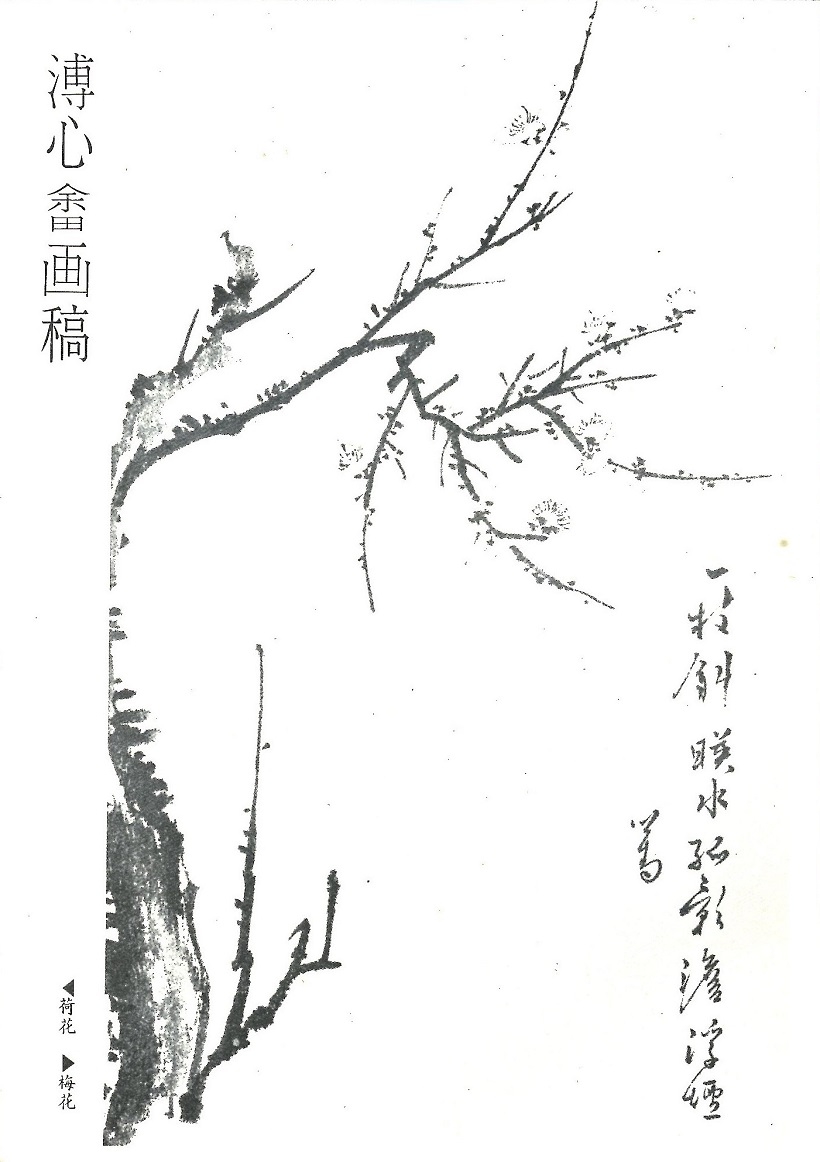 溥心畬画稿
一枝斜暎水孤影澹浮煙
心畬
◀荷花 ▶梅花